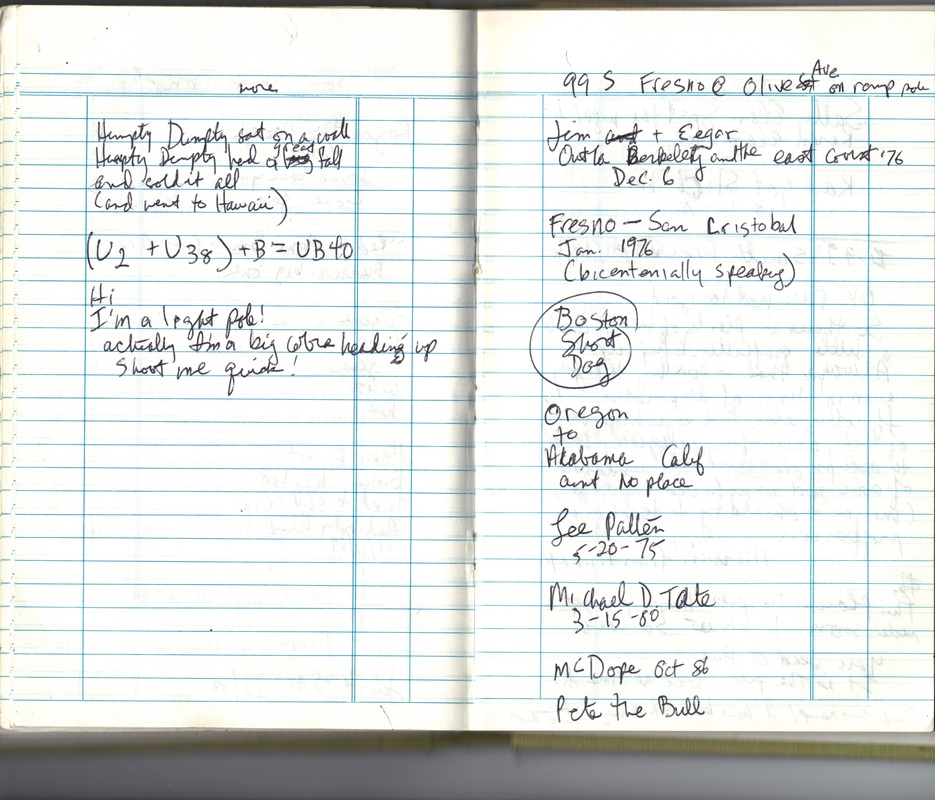 more
Humpty Dumpty sat on a wall
Humpty Dumpty had a great fall
and sold it all
(and went to Hawaii)
(U2 + U38) + B = UB40
Hi
I'm a light pole!
actually I'm a big cobra heading up
Shoot me quick!
99 S Fresno @ Olive Ave on ramp pole
Jim + Eegar
Outta Berkeley and the east coast '76
Dec. 6
Fresno — San Cristobal
Jan. 1976
(bicentenially speaking)
Boston
Short
Dog
Oregon
to
Alabama Calif
aint no place
Lee Patten
5-20-75
Michael D. Tate
3-15-80
McDope Oct 86
Pete the Bull